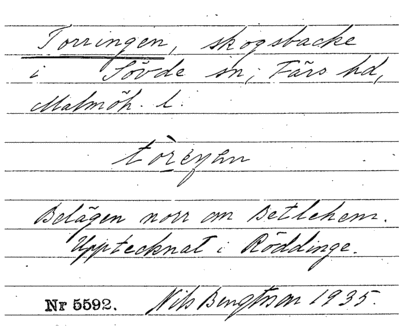 Torringen, skogsbacke
i Sövde sn, Färs hd,
Malmöh. l.
Belägen norr om Betlehem.
Upptecknat i Röddinge.
Nr 5592. Nils Bengtson 1935.